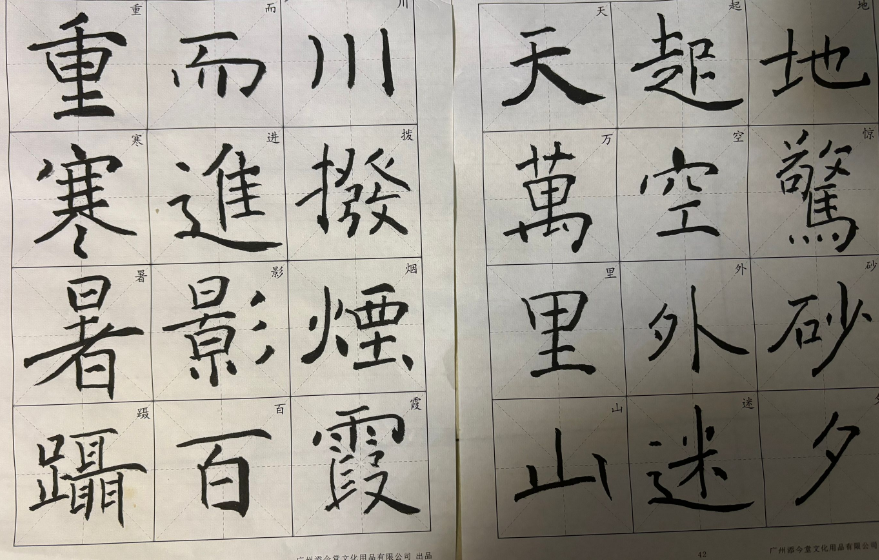 地驚砂夕
起空外迷
天萬里山
川撥煙霞
而進影百
重寒暑躡
地 惊 砂
起 空 外 迷
天 万 里 山
川 拨 烟 霞
而 进 影 百
重 寒 暑 蹑
42
广州 今堂文化用品有限公司
广州 今堂文化用品有限公司 出品